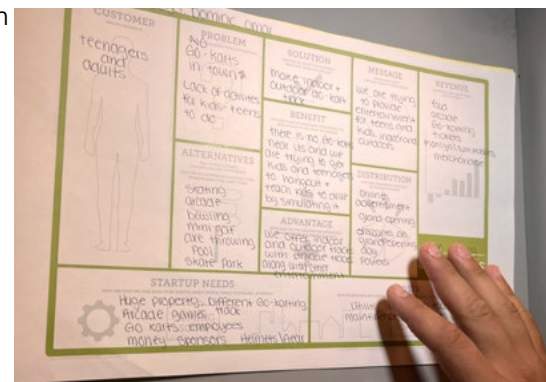 Dominic Omar
CUSTOMER
teenagers
and
adults
PROBLEM
NO
GO-karts
in town
Lack of activities
for kids/teens
to do
ALTERNATIVES
skating
arcade
bowling
mini golf
axe throwing
pool
skate park
SOLUTION
make indoor +
outdoor go-kart
track
BENEFIT
there is no Go-karts
near us and we
are trying to get
kids and teenagers
to hangout +
teach kids to drive
by simulating it
ADVANTAGE
we offer indoor
and outdoor tracks
with
along with other
entertainment
MESSAGE
we are trying
to provide
entertainment
for teens and
kids, indoor and
outdoors
DISTRIBUTION
online
advertisement
grand opening
discounts on
grand opening
day
posters
REVENUE
food
arcade
Go-karting
tickets
merchandise
STARTUP NEEDS
Huge property, Different Go-karting
Arcade games track
Go karts employees
money sponsors Helmets/Gear